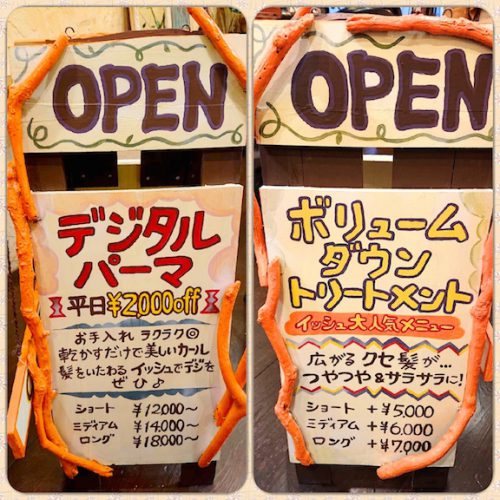 OPEN
デジタル
パーマ
平日¥2,000off
お手入れ ラクラク◎
乾かすだけで美しいカール
髪をいたわる イッシュでデジを
ぜひ♪
ショート ¥12,000〜
ミディアム ¥14,000〜
ロング ¥18,000〜
OPEN
ボリューム
ダウン
トリートメント
イッシュ大人気メニュー
広がる クセ髪が…
つやつや&サラサラに!
ショート +¥5,000
ミディアム +¥6,000
ロング +¥7,000